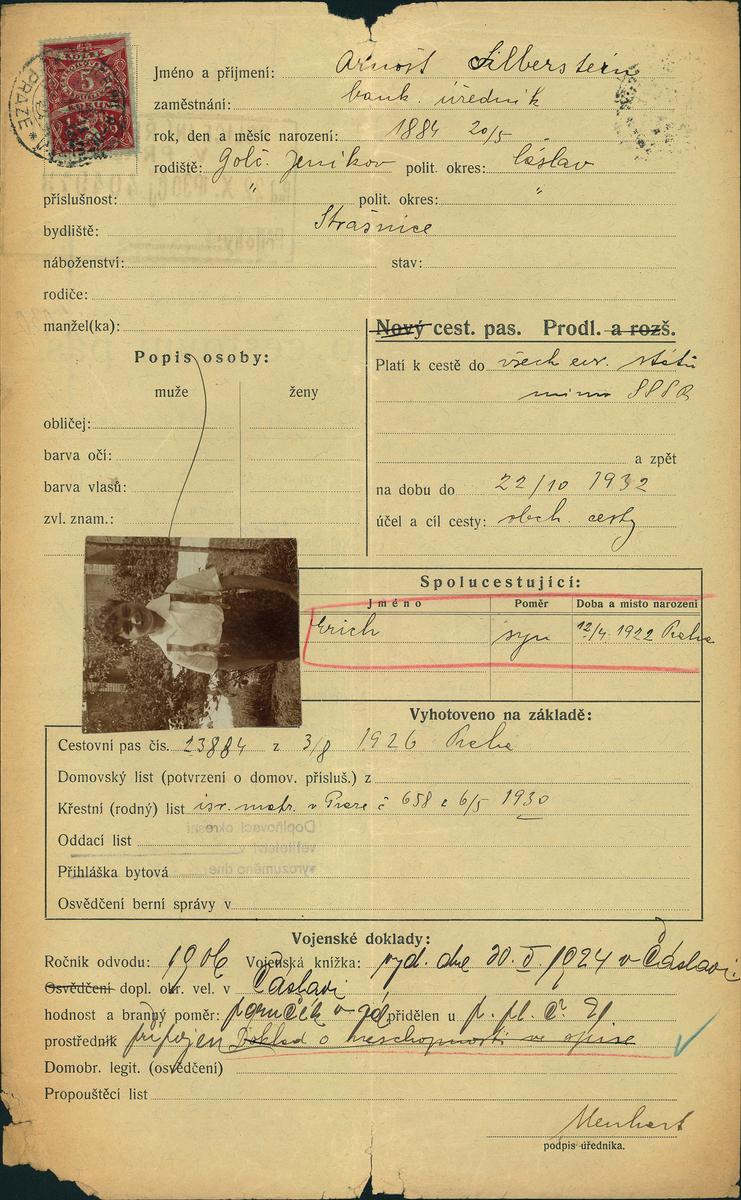 Jméno a příjmení: Arnošt Silberstein
zaměstnání: bank. úředník
rok, den a měsíc narození: 1884 20/5
rodiště: Golč. Jeníkov polit. okres: Čáslav
příslušnost: " polit. okres: "
bydliště: Strašnice
náboženství: stav:
rodiče:
manžel(ka):
Nový cest. pas. Prodl. a rozš.
Popis osoby:
Platí k cestě do všech evr. států
muže ženy
mimo SSSR
obličej:
barva očí: a zpět
barva vlasů:
na dobu do 22/10 1932
zvl. znam.:
účel a cíl cesty: obch. cesty
Spolucestující:
Jméno Poměr Doba a místo narození
Erich syn 12/4 1922 Praha
Vyhotoveno na základě:
Cestovní pas čís. 23884 z 3/8 1926 Praha
Domovský list (potvrzení o domov. přísluš.) z
Křestní (rodný) list isr. matr. v Praze č 658 z 6/5 1930
Doplňovací okresní
Oddací list
velitelství v
Přihláška bytová
vyrozuměno dne
Osvědčení berní správy v
Vojenské doklady:
Ročník odvodu: 1906 Vojenská knížka: vyd. dne 20. V. 1924 v Čáslavi.
Osvědčení dopl. okr. vel. v Čáslavi
hodnost a branný poměr: poručík v přidělen u p. pl. č. 21
prostředník připojen Doklad o neschopnosti ve spise
Domobr. legit. (osvědčení)
Propouštěcí list
Menhart
podpis úředníka.